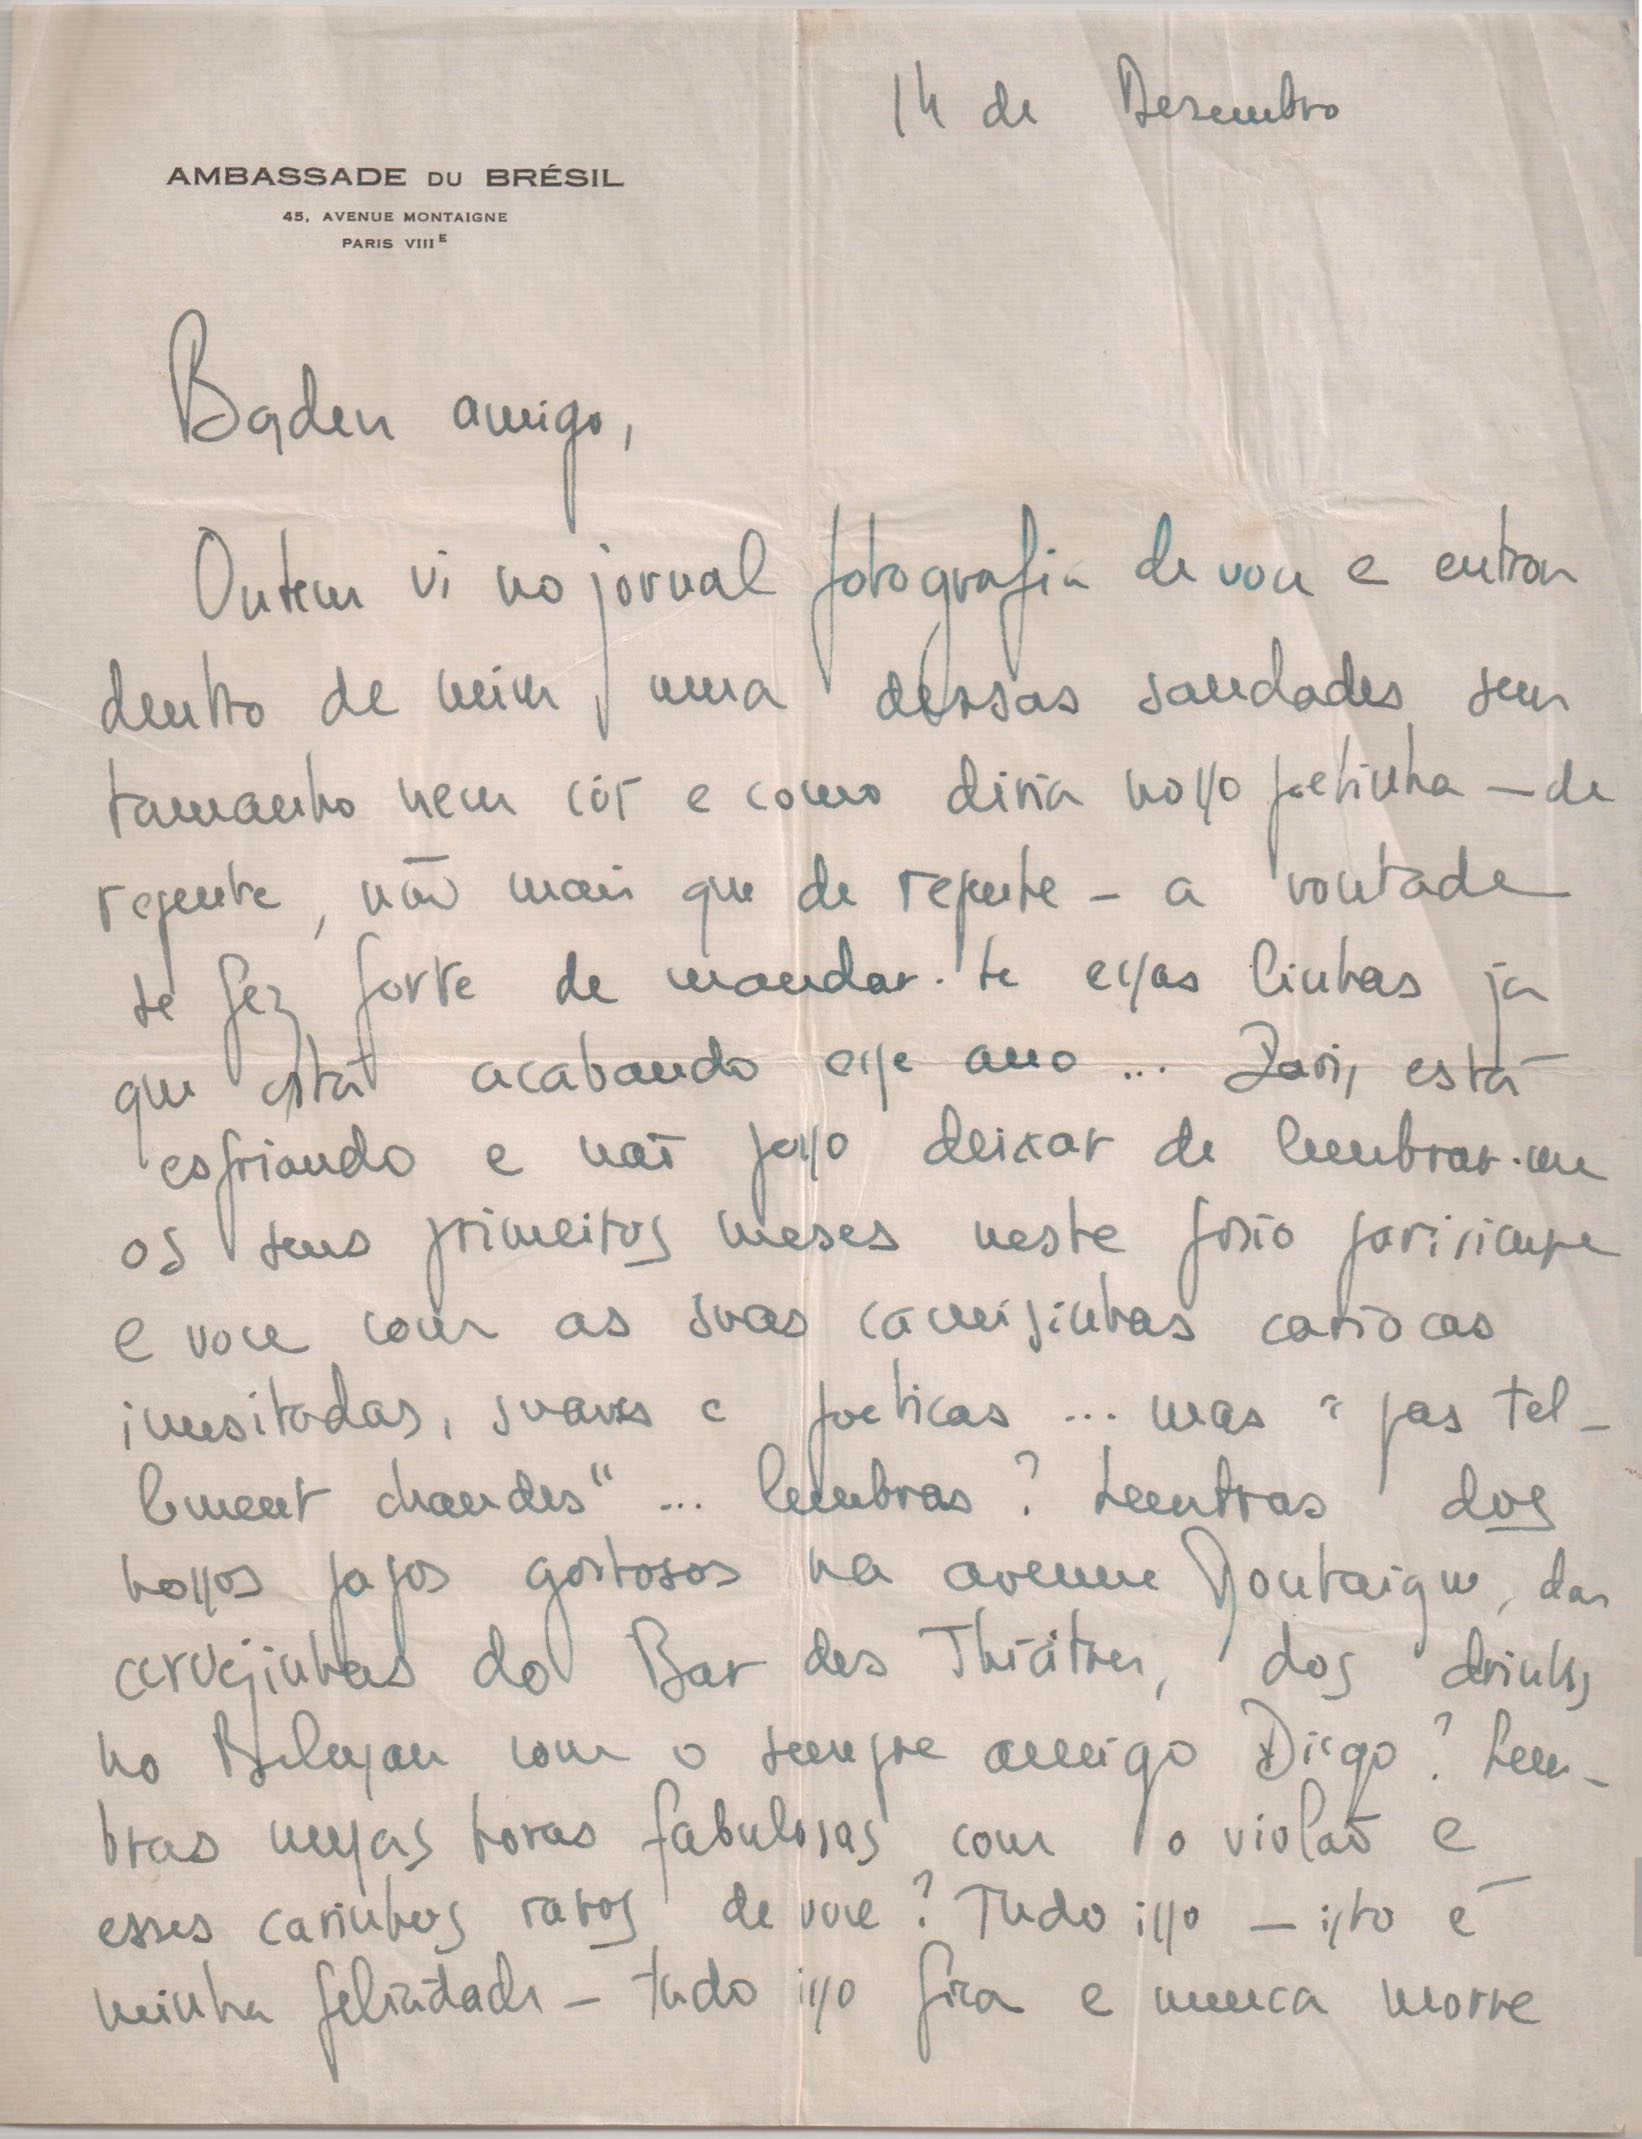 14 de Dezembro
AMBASSADE DU BRÉSIL
45, AVENUE MONTAIGNE
PARIS VIIIE
Baden amigo,
Ontem vi no jornal fotografia de voce e entrou
dentro de mim, uma dessas saudades sem
tamanho nem côr e como diria nosso poetinha – de
repente, não mais que de repente – a vontade
se fez forte de mandar-te essas linhas ja
que está acabando esse ano ... Paris, está
esfriando e não posso deixar de lembrar-me
os seus primeiros meses neste frio parisiense
e voce com as suas camisinhas cariocas
inusitadas, suaves e poeticas ... mas "pas tel-
lement chaudes" ... lembras? Lembras dos
nossos papos gostosos na avenue Montaigne, das
cervejinhas do Bar des Théâtres, dos drinks
no com o sempre amigo Diego? Lem-
bras nessas horas fabulosas com o violão e
esses carinhos raros de voce? Tudo isso – isto é
minha felicidade – tudo isso fica e nunca morre